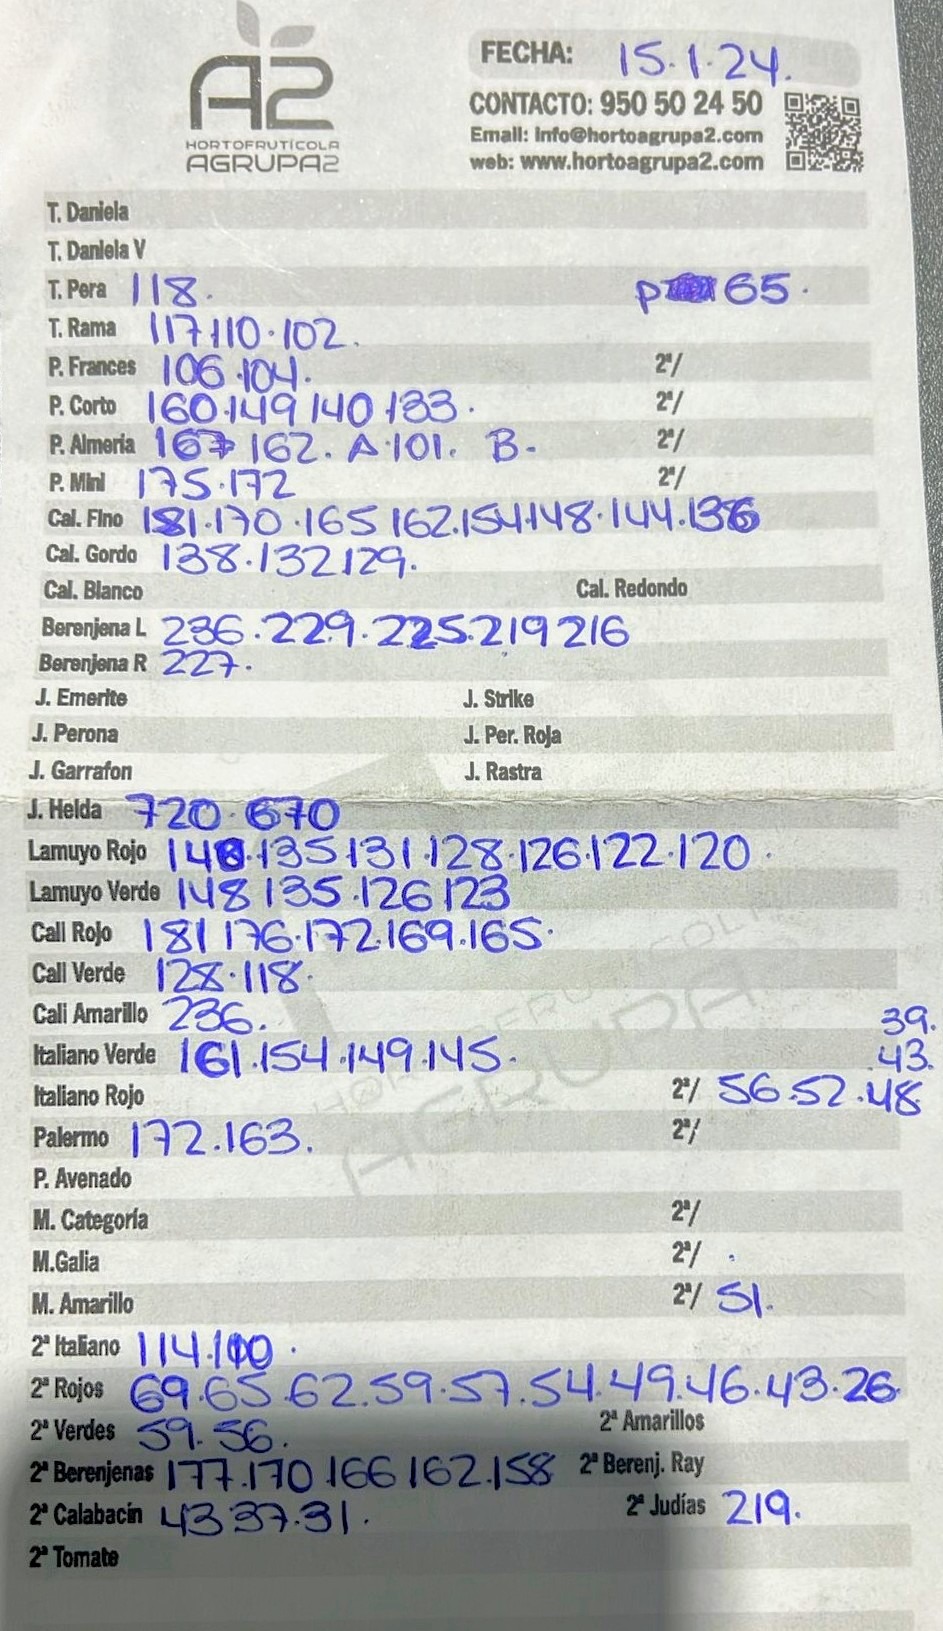 A2
HORTOFRUTÍCOLA
AGRUPA2
FECHA: 15.1.24.
CONTACTO: 950 50 24 50
Email: info@hortoagrupa2.com
web: www.hortoagrupa2.com
T. Daniela
T. Daniela V
T. Pera 118. P 65.
T. Rama 117.110.102.
P. Frances 106.104. 2ª/
P. Corto 160.149 140.133. 2ª/
P. Almeria 167 162. A.101. B- 2ª/
P. Mini 175.172 2ª/
Cal. Fino 181.170.165 162.154.148.144.136
Cal. Gordo 138.132 129.
Cal. Blanco Cal. Redondo
Berenjena L 236.229.225.219 216
Berenjena R 227.
J. Emerite J. Strike
J. Perona J. Per. Roja
J. Garrafon J. Rastra
J. Helda 720.670
Lamuyo Rojo 148.135.131.128.126.122.120.
Lamuyo Verde 148 135.126 123
Cali Rojo 181 176.172.169.165.
Cali Verde 128.118.
Cali Amarillo 236. 39.
Italiano Verde 161.154.149.145. 43.
Italiano Rojo 2ª/ 56.52.48
Palermo 172.163. 2ª/
P. Avenado
M. Categoría 2ª/
M.Galia 2ª/ .
M. Amarillo 2ª/ 51.
2ª Italiano 114.100.
2ª Rojos 69.65.62.59.57.54.49.46.43.26.
2ª Verdes 59.56. 2ª Amarillos
2ª Berenjenas 177.170 166 162.158 2ª Berenj. Ray
2ª Calabacín 43 37.31. 2ª Judías 219.
2ª Tomate
HORTOFRUTÍCOLA
AGRUPA2